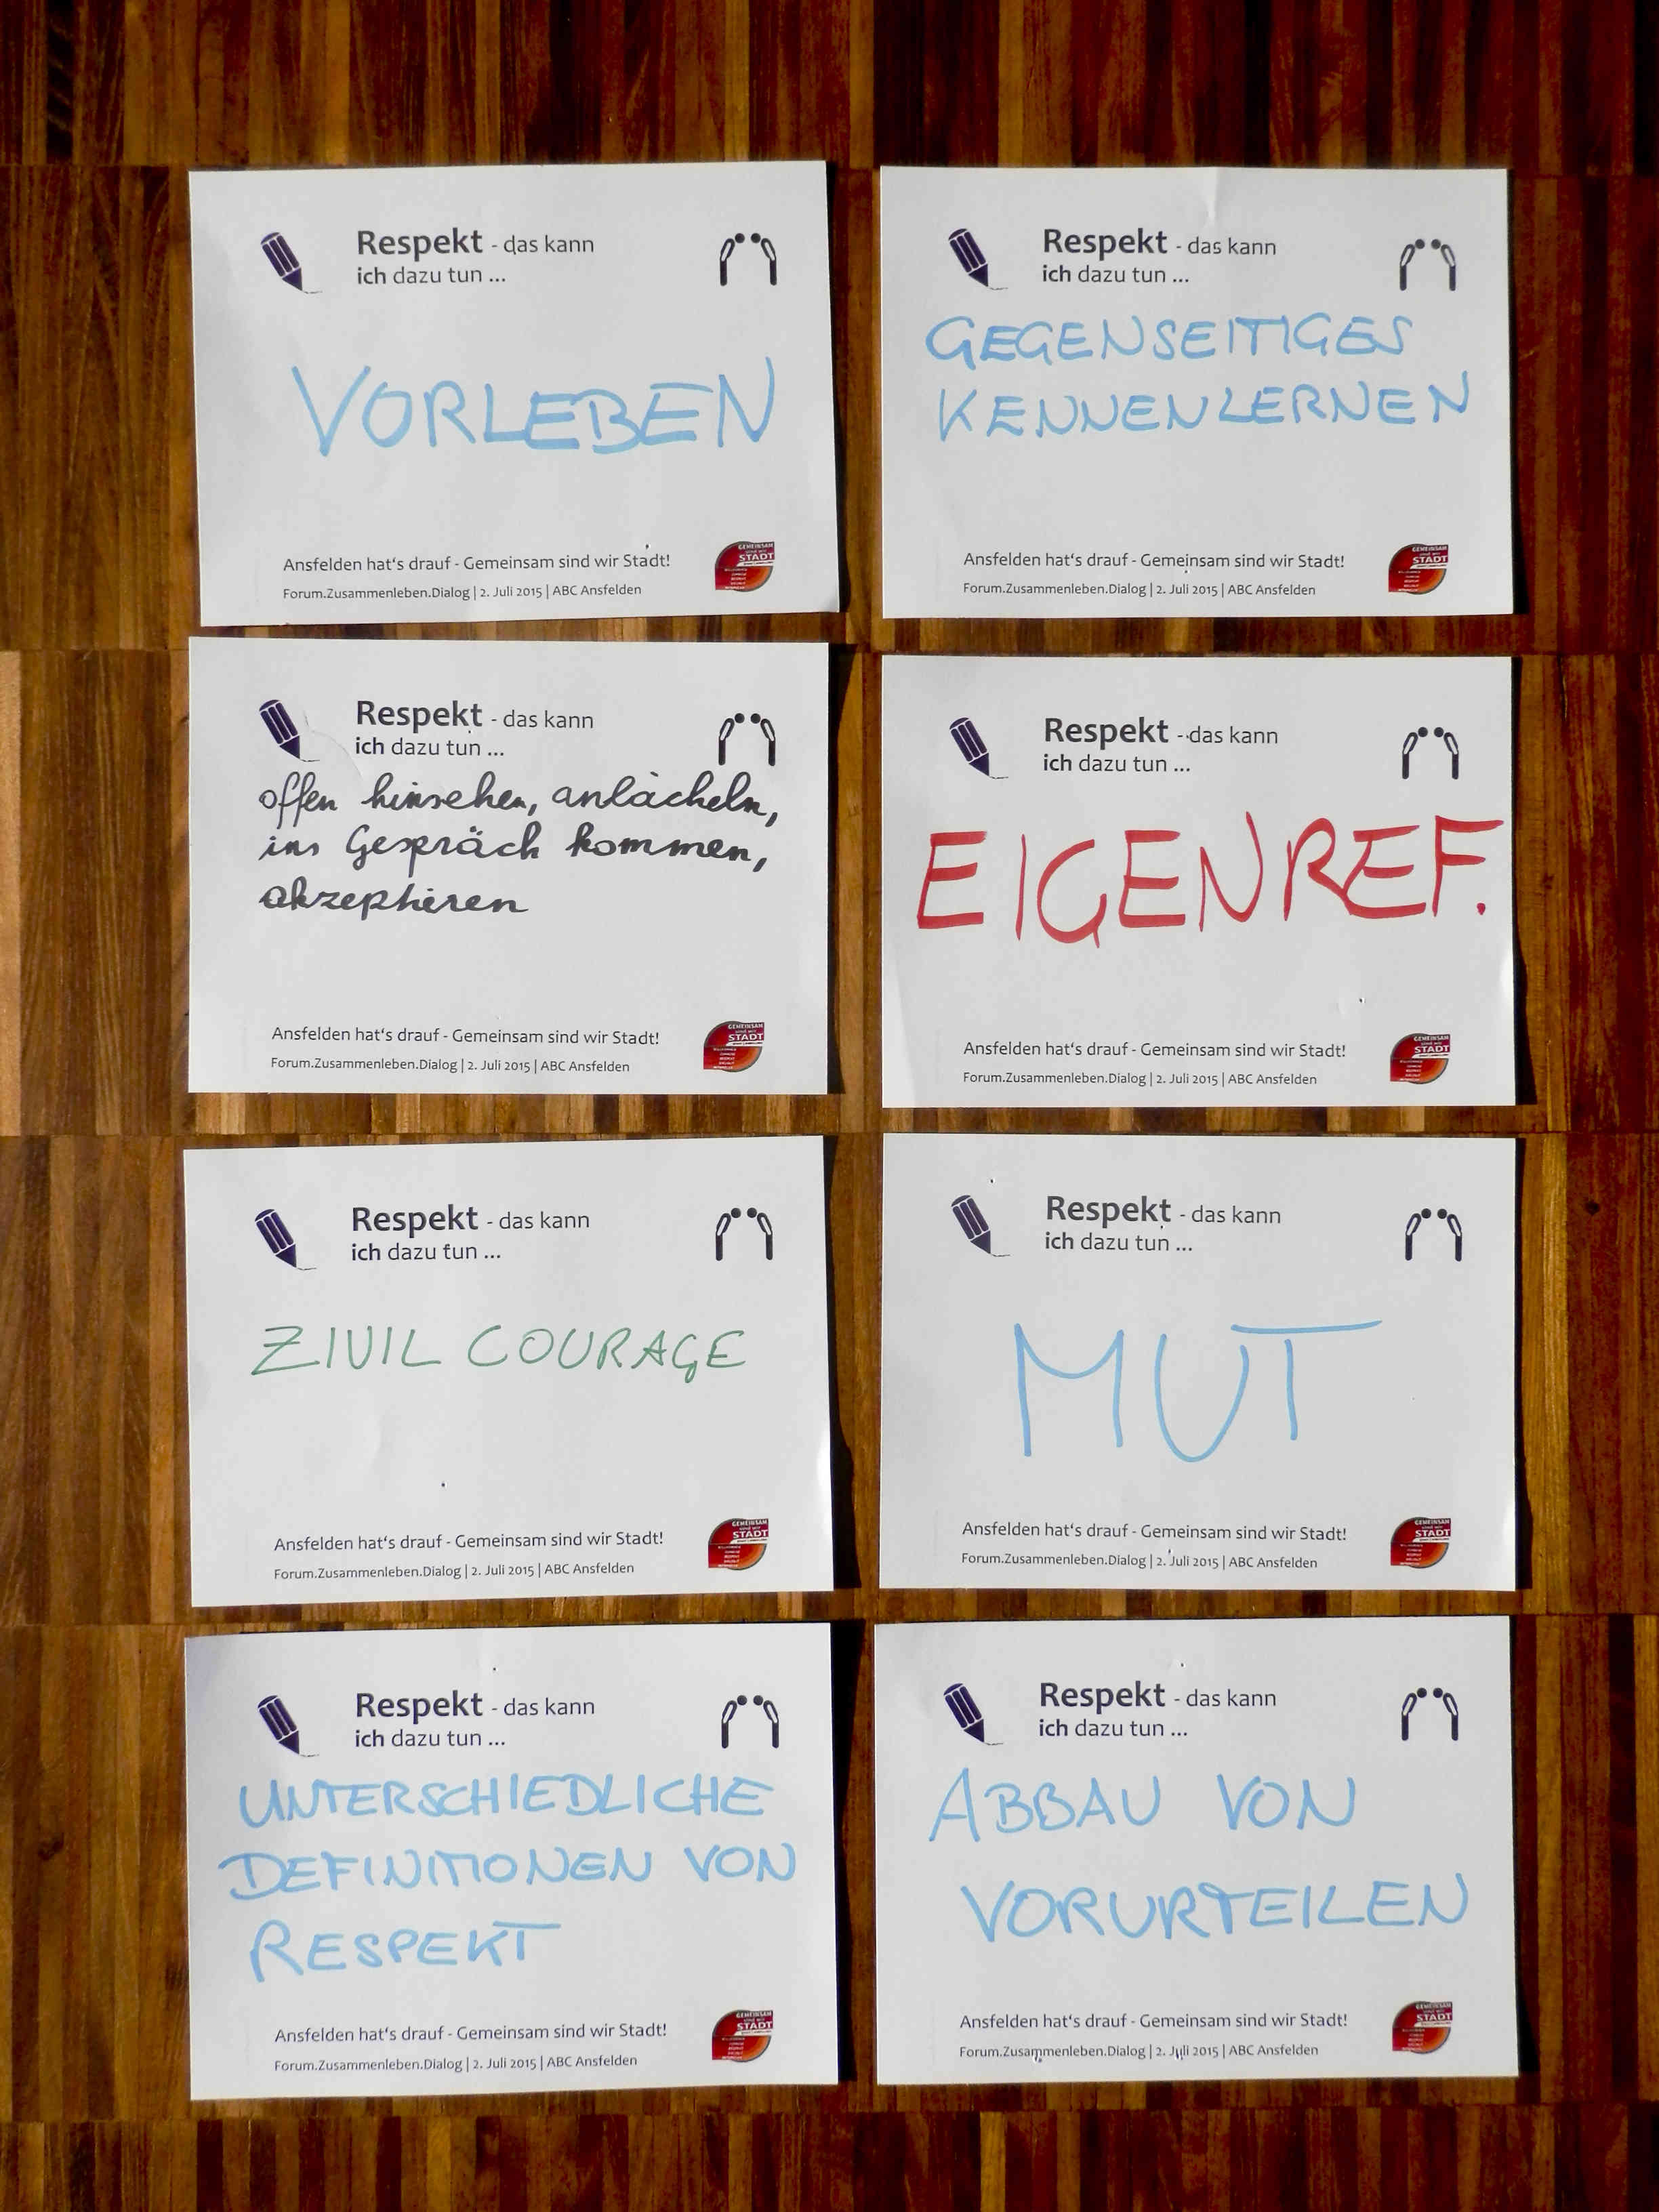 Respekt - das kann
ich dazu tun ...
VORLEBEN
Ansfelden hat's drauf - Gemeinsam sind wir Stadt!
Forum.Zusammenleben.Dialog | 2. Juli 2015 | ABC Ansfelden
GEMEINSAM
sind wir
STADT
Respekt - das kann
ich dazu tun ...
GEGENSEITIGES
KENNENLERNEN
Ansfelden hat's drauf - Gemeinsam sind wir Stadt!
Forum.Zusammenleben.Dialog | 2. Juli 2015 | ABC Ansfelden
GEMEINSAM
sind wir
STADT
Respekt - das kann
ich dazu tun ...
offen hinsehen, anlächeln,
ins Gespräch kommen,
akzeptieren
Ansfelden hat's drauf - Gemeinsam sind wir Stadt!
Forum.Zusammenleben.Dialog | 2. Juli 2015 | ABC Ansfelden
GEMEINSAM
sind wir
STADT
Respekt - das kann
ich dazu tun ...
EIGENREF.
Ansfelden hat's drauf - Gemeinsam sind wir Stadt!
Forum.Zusammenleben.Dialog | 2. Juli 2015 | ABC Ansfelden
GEMEINSAM
sind wir
STADT
Respekt - das kann
ich dazu tun ...
ZIVIL COURAGE
Ansfelden hat's drauf - Gemeinsam sind wir Stadt!
Forum.Zusammenleben.Dialog | 2. Juli 2015 | ABC Ansfelden
GEMEINSAM
sind wir
STADT
Respekt - das kann
ich dazu tun ...
MUT
Ansfelden hat's drauf - Gemeinsam sind wir Stadt!
Forum.Zusammenleben.Dialog | 2. Juli 2015 | ABC Ansfelden
GEMEINSAM
sind wir
STADT
Respekt - das kann
ich dazu tun ...
UNTERSCHIEDLICHE
DEFINITIONEN VON
RESPEKT
Ansfelden hat's drauf - Gemeinsam sind wir Stadt!
Forum.Zusammenleben.Dialog | 2. Juli 2015 | ABC Ansfelden
GEMEINSAM
sind wir
STADT
Respekt - das kann
ich dazu tun ...
ABBAU VON
VORURTEILEN
Ansfelden hat's drauf - Gemeinsam sind wir Stadt!
Forum.Zusammenleben.Dialog | 2. Juli 2015 | ABC Ansfelden
GEMEINSAM
sind wir
STADT